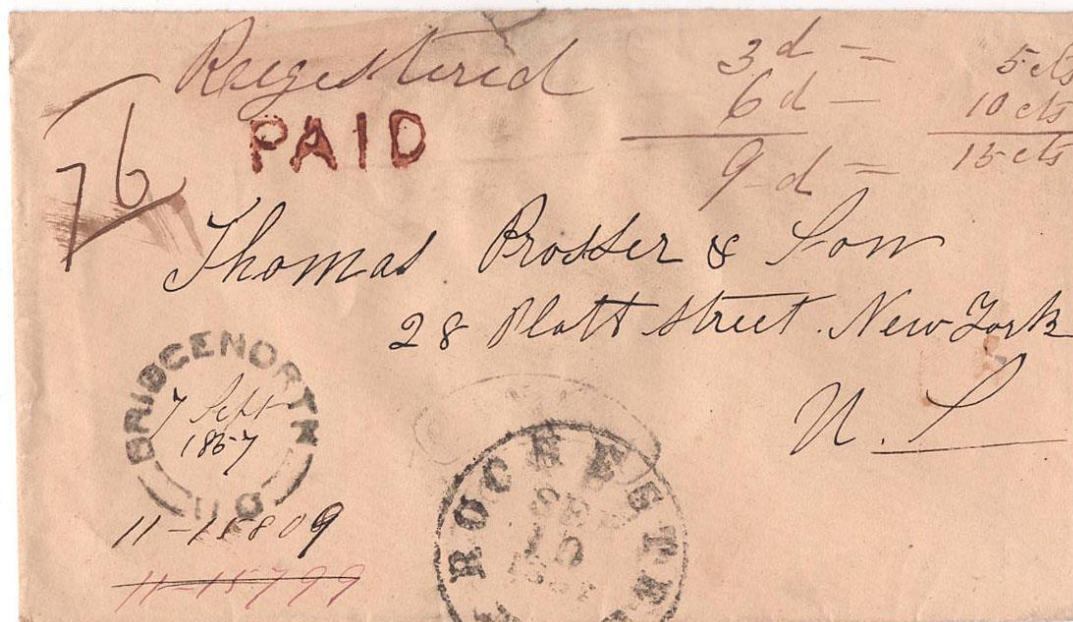 Registered
3d = 5 cts
6d — 10 cts
9d = 15 cts
76
PAID
Thomas Prosser & Son
28 Platt Street. New York
U. S
BRIDGENORTH
7 Sept
1857
U.C
11-15809
11-15799
ROCHESTE
SEP
10
1857